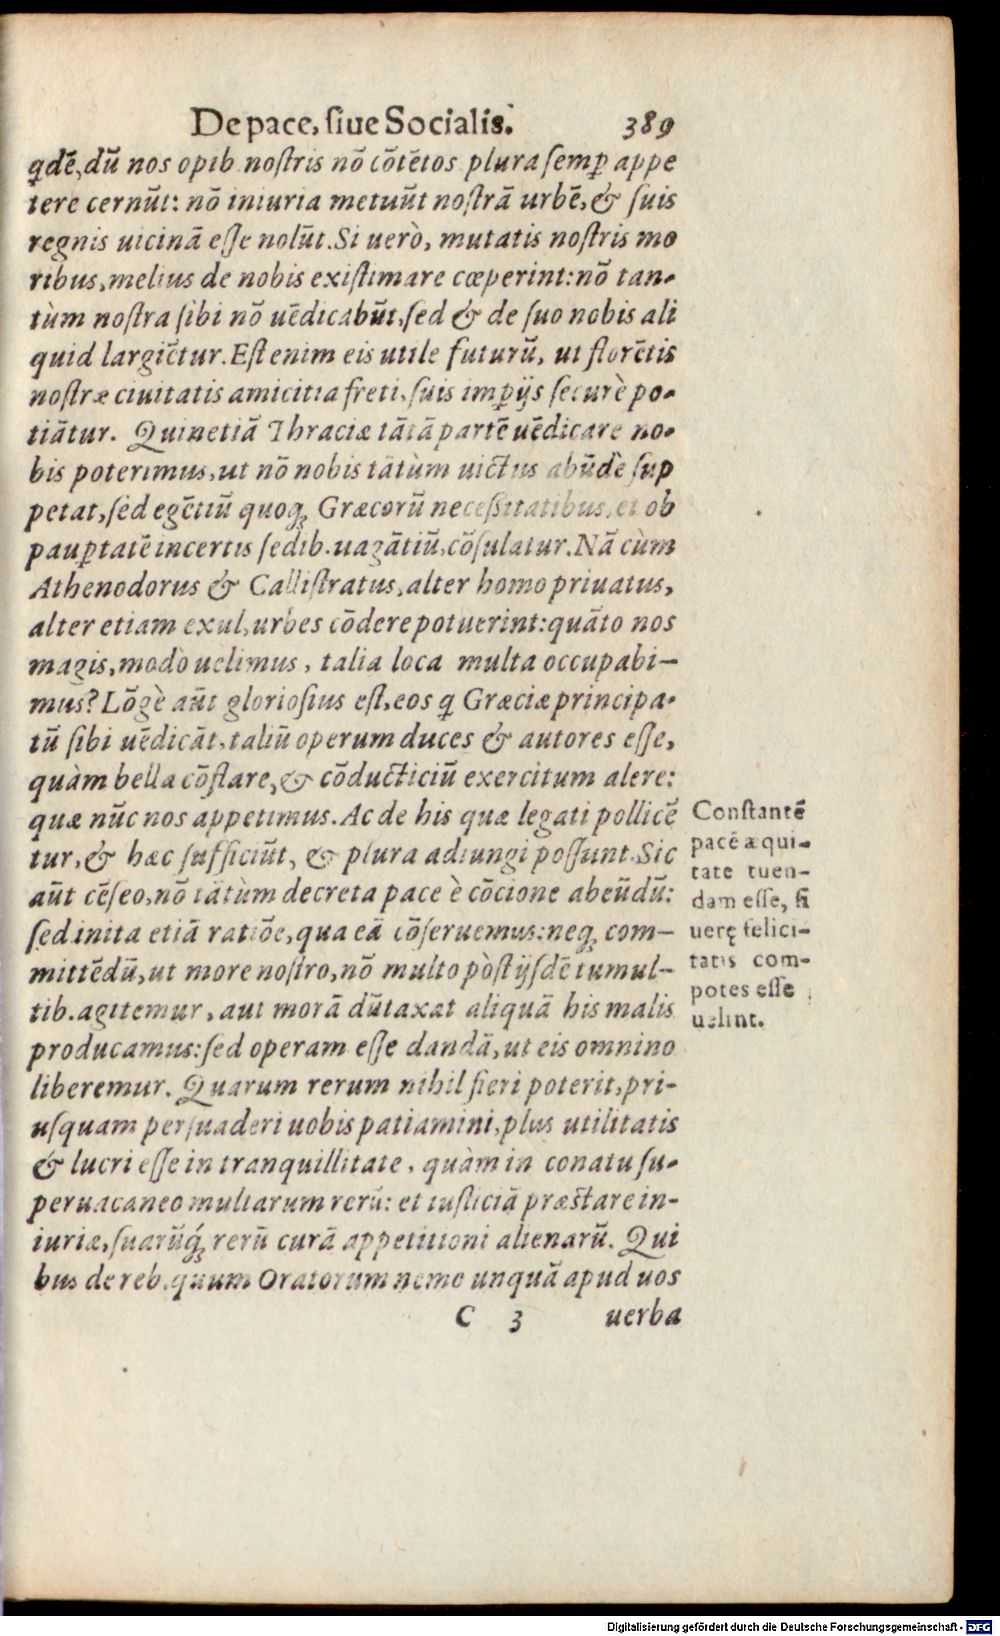 De pace, ſiue Socialis. 389
qdē, dū nos opib nostris nō cōtētos plura ſemꝑ appe
tere cernūt: nō iniuria metuūt nostrā urbē, & ſuis
regnis uicinā eſſe nolūt. Si uerò, mutatis nostris mo
ribus, melius de nobis existimare cœperint: nō tan-
tùm nostra ſibi nō uēdicabūt, ſed & de ſuo nobis ali
quid largiētur. Est enim eis utile futurū, ut florētis
nostræ ciuitatis amicitia freti, ſuis imꝑijs ſecurè po-
tiātur. Quinetiā Thraciæ tātā partē uēdicare no-
bis poterimus, ut nō nobis tātùm uictus abūdè ſup
petat, ſed egētiū quoqꝫ Græcorū neceſsitatibus, et ob
pauꝑtatē incertis ſedib. uagātiū, cōſulatur. Nā cùm
Athenodorus & Callistratus, alter homo priuatus,
alter etiam exul, urbes cōdere potuerint: quāto nos
magis, modò uelimus, talia loca multa occupabi-
mus? Lōgè aūt glorioſius est, eos q Græciæ principa-
tū ſibi uēdicāt, taliū operum duces & autores eſſe,
quàm bella cōflare, & cōducticiū exercitum alere:
quæ nūc nos appetimus. Ac de his quæ legati pollicē
tur, & hæc ſufficiūt, & plura adiungi poſſunt. Sic
aūt cēſeo, nō tātùm decreta pace è cōcione abeūdū:
ſed inita etiā ratiōe, qua eā cōſeruemus: neqꝫ com-
mittēdū, ut more nostro, nō multo pòst ijſdē tumul-
tib. agitemur, aut morā dūtaxat aliquā his malis
producamus: ſed operam eſſe dandā, ut eis omnino
liberemur. Quarum rerum nihil fieri poterit, pri-
uſquam perſuaderi uobis patiamini, plus utilitatis
& lucri eſſe in tranquillitate, quàm in conatu ſu-
peruacaneo multarum rerū: et iusticiā præstare in-
iuriæ, ſuarūqꝫ rerū curā appetitioni alienarū. Qui
bus de reb. quum Oratorum nemo unquā apud uos
C 3 uerba
Constantē
pacē æqui-
tate tuen-
dam eſſe, ſi
uerę felici-
tatis com-
potes eſſe
uelint.
Digitalisierung gefördert durch die Deutsche Forschungsgemeinschaft - DFG